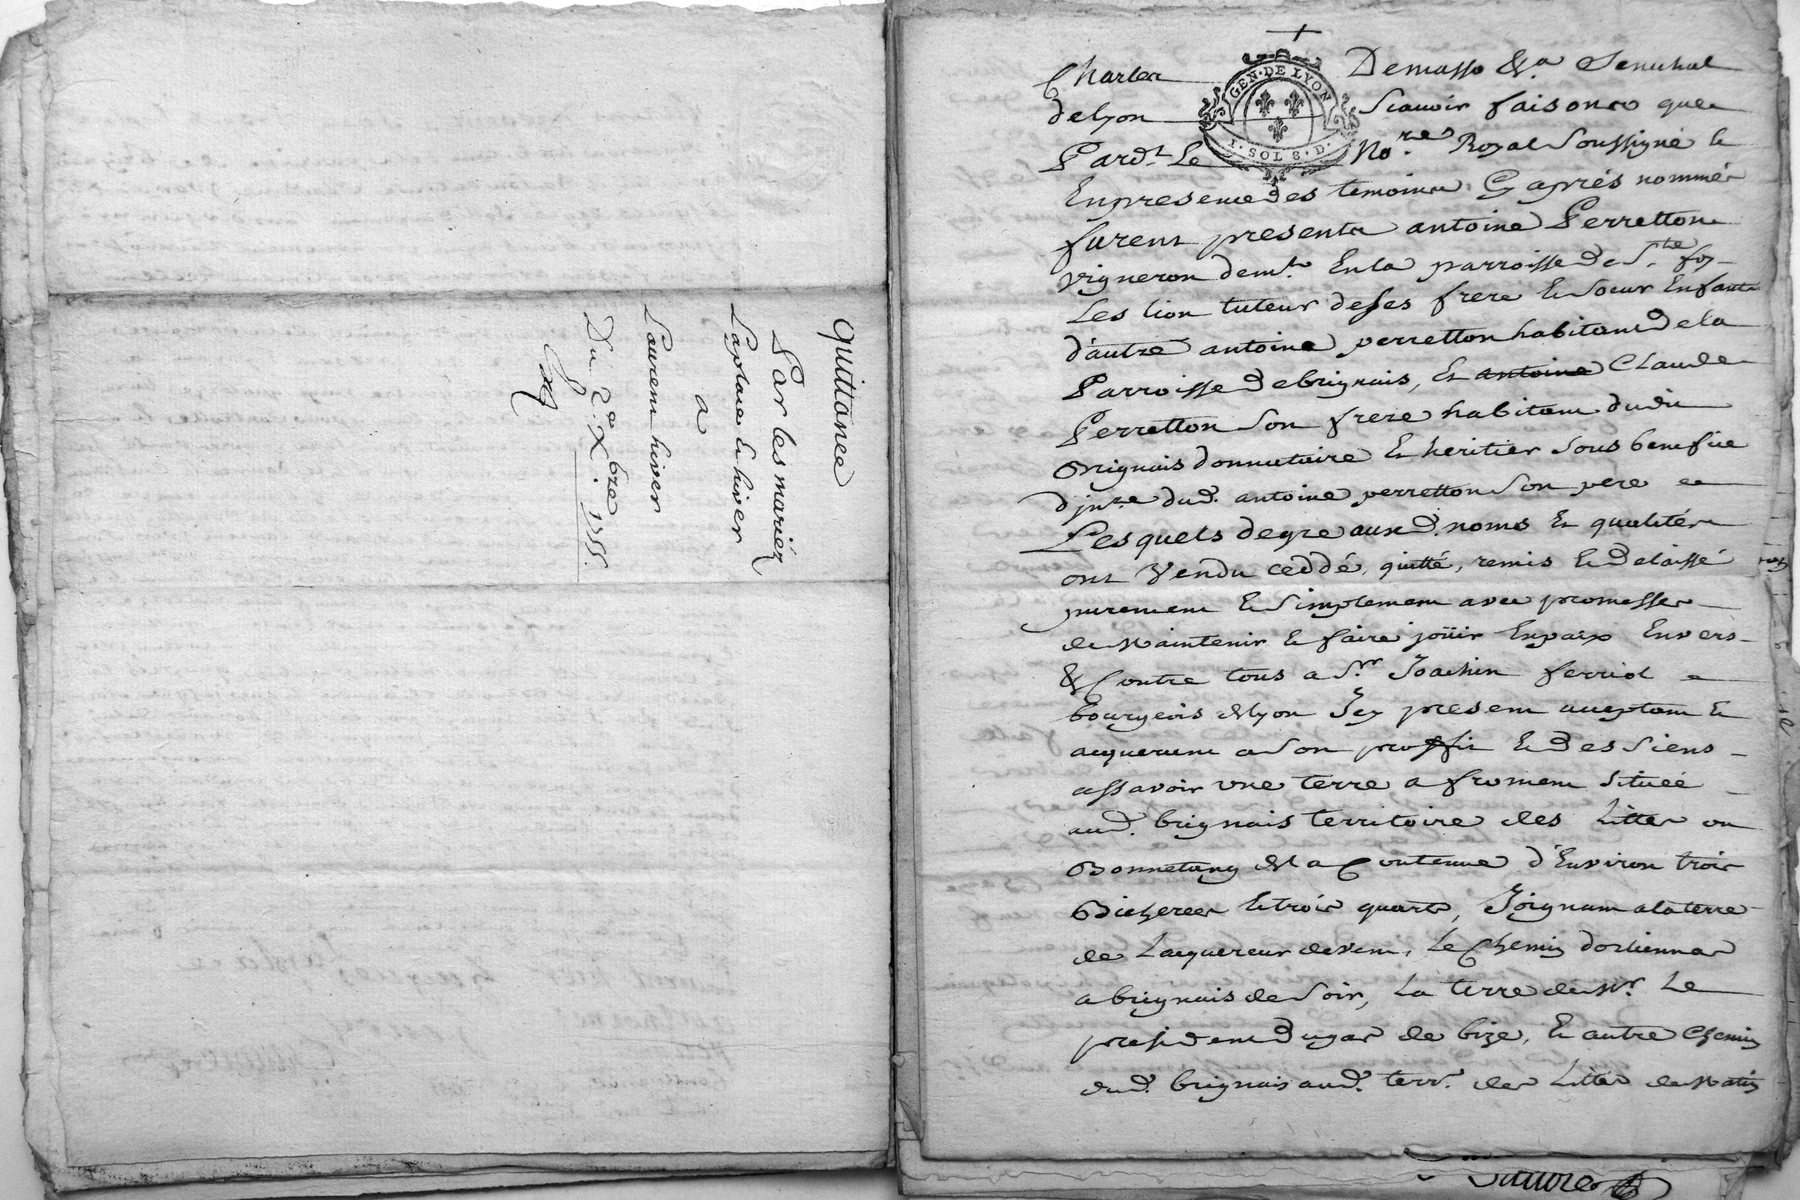 quittance
Par les mariéz
Laplace & hiver
a
Laurent hiver
Du 2e Xbre 1755.
GEN. DE LYON
1. SOL 8. D.
Charles Demasso &a Senechal
delyon Scavoir faisons que
Pardt Le Nore Royal Soussigné &
En presence des temoins Cy aprés nommés
furent presents antoine Perretton
vigneron demt En la parroisse de Ste foy
Les lion tuteur deses frere & soeur Enfants
d'autre antoine perretton habitant dela
Parroisse de brignais, Et antoine Claude
Perretton Son frere habitant dudit
Brignais donnataire Et heritier Sous benefice
d'jnre dud. antoine perretton Son pere
Lesquels degre auxd. noms Et qualités
ont Vendu ceddé, quitté, remis & delaissé
purement & Simplement avec promesses
de Maintenir & faire joüir En paix Envers
& Contre tous a Sr. Joachin ferriol
bourgeois delyon Jcy present acceptant &
acquerant a Son proffit & des Siens
assavoir une terre a froment Situeé
aud. brignais territoire des Littes ou
Bonnetang de la Contenue d'Environ trois
Bicherees & trois quarts, Joignant a la terre
de Lacquereur devent, Le Chemin dorlienas
a brignais de Soir, La terre de Mr. Le
president dugas de bize, & autre Chemin
dud. brignais aud. terr. des Littes de Matin